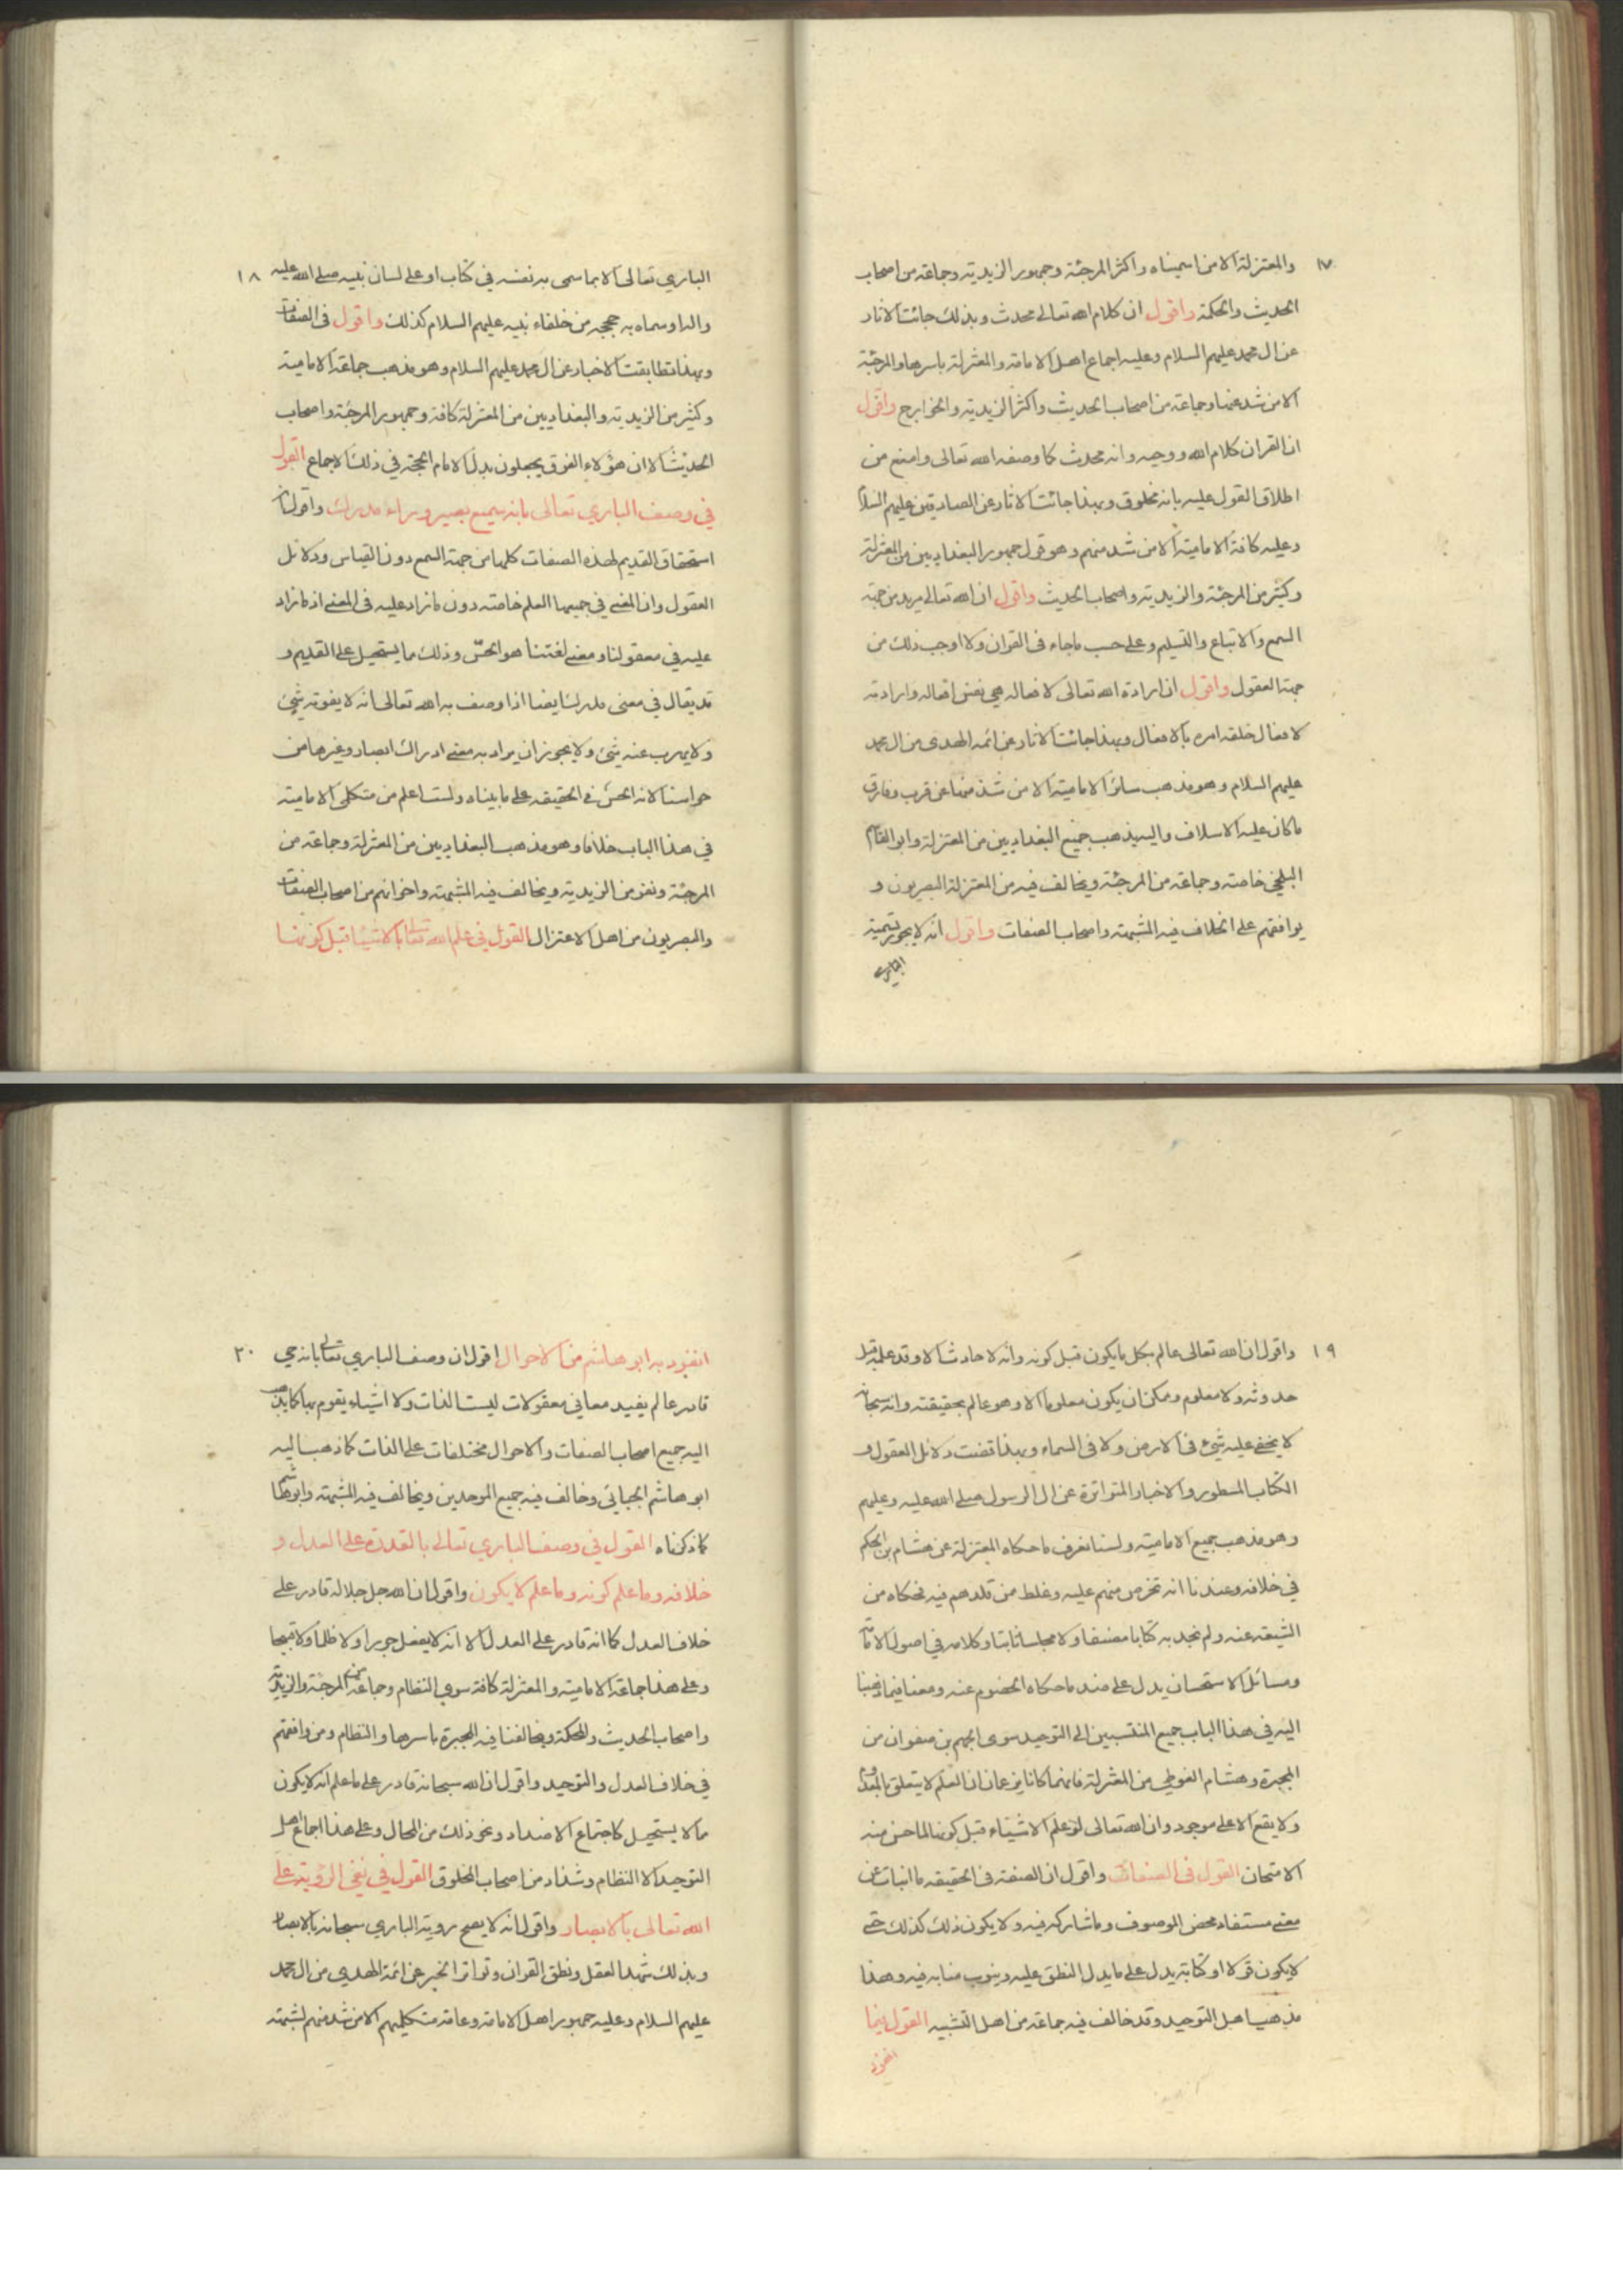 ١٧
والمعتزلة الا من اسميناه واكثر المرجئة وجمهور الزيدية وجماعة من اصحاب
الحديث والحكمة واقول ان كلام الله تعالى محدث وبذلك جائت الاثار
عن ال محمد عليهم السلام وعليه اجماع اهل الامامة والمعتزلة باسرها والمرجئة
الا من شذ عنها وجماعة من اصحاب الحديث واكثر الزيدية والخوارج واقول
ان القران كلام الله ووحيه وانه محدث كما وصفه الله تعالى وامنع من
اطلاق القول عليه بانه مخلوق وبهذا جائت الاثار عن الصادقين عليهم السلام
وعليه كافة الامامية الا من شذ منهم وهو قول جمهور البغداديين من المعتزلة
وكثير من المرجئة والزيدية واصحاب الحديث واقول ان الله تعالى مريد من جهة
السمع والاتباع والتسليم وعلى حسب ماجاء فى القران ولا اوجب ذلك من
جهة العقول واقول ان ارادة الله تعالى لافعاله هي نفس افعاله وارادته
لافعال خلقه امره بالافعال وبهذا جائت الاثار عن ائمة الهدى من ال محمد
عليهم السلام وهو مذهب سائر الامامية الا من شذ منها عن قرب وفارق
ماكان عليه الاسلاف واليه يذهب جميع البغداديين من المعتزلة وابو القاسم
البلخي خاصة وجماعة من المرجئة ويخالف فيه من المعتزلة البصريون و
يوافقهم على الخلاف فيه المشبهة واصحاب الصفات واقول انه لايجوز تسمية
البارى
١٨
الباري تعالى الا بما سمى به نفسه في كتابه او على لسان نبيه صلى الله عليه
واله او سماه به حججه من خلفاء نبيه عليهم السلام كذلك واقول فى الصفات
وبهذا تطابقت الاخبار عن ال محمد عليهم السلام وهو مذهب جماعة الامامية
وكثير من الزيدية والبغداديين من المعتزلة كافة وجمهور المرجئة واصحاب
الحديث الا ان هؤلاء الفرق يجعلون بدل الامام الحجة في ذلك الاجماع القول
في وصف الباري تعالى بانه سميع بصير وراء مدرك واقول ان
استحقاق القديم لهذه الصفات كلها من جهة السمع دون القياس ودلائل
العقول وان المعنى في جميعها العلم خاصة دون مازاد عليه فى المعنى اذ مازاد
عليه في معقولنا ومعنى لغتنا هو الحسّ وذلك مايستحيل على القديم و
قد يقال في معنى مدرك ايضا اذا وصف به الله تعالى انه لا يفوته شئ
ولا يهرب عنه شئ ولا يجوز ان يراد به معنى ادراك ابصار وغيرها من
حواسنا لانه الحسّ في الحقيقة على مابيناه ولست اعلم من متكلمى الامامية
في هذا الباب خلافا وهو مذهب البغداديين من المعتزلة وجماعة من
المرجئة ونفر من الزيدية ويخالف فيه المشبهة واخوانهم من اصحاب الصفات
والبصريون من اهل الاعتزال القول في علم الله تعالى بالاشياء قبل كونها
١٩
واقول ان الله تعالى عالم بكل مايكون قبل كونه وانه لا حادث الا وقد علمه قبل
حدوثه ولا معلوم وممكن ان يكون معلوما الا وهو عالم بحقيقته وانه سبحانه
لايخفى عليه شئ فى الارض ولا فى السماء وبهذا قضت دلائل العقول و
الكتاب المسطور والاخبار المتواترة عن ال الرسول صلى الله عليه وعليهم
وهو مذهب جميع الامامية ولسنا نعرف ماحكاه المعتزلة عن هشام بن الحكم
في خلافه وعندنا انه تخرص منهم عليه وغلط من قلدهم فيه فحكاه من
الشيعة عنه ولم نجد به كتابا مصنفا ولا مجلسا ثابتا وكلامه في اصول الامامة
ومسائل الاستحسان يدل على ضد ماحكاه الخصوم عنه ومعنا فيما ذهبنا
اليه في هذا الباب جميع المنتسبين الى التوحيد سوى الجهم بن صفوان من
المجبرة وهشام الفوطي من المعتزلة فانهما كانا يزعمان ان العلم لايتعلق بالمعدوم
ولا يقع الا على موجود وان الله تعالى لو علم الاشياء قبل كونها لما حسن منه
الامتحان القول فى الصفات واقول ان الصفة فى الحقيقة ما انبات عن
معنى مستفاد يخص الموصوف وما شاركه فيه ولا يكون ذلك كذلك حتى
لايكون قولا او كتابة يدل على مايدل النطق عليه وينوب منابه فيه وهذا
مذهب اهل التوحيد وقد خالف فيه جماعة من اهل التشبيه القول فيما
انفرد
٢٠
انفرد به ابو هاشم من الاحوال اقول ان وصف الباري تعالى بانه حي
قادر عالم يفيد معاني معقولات ليست الذات ولا اشياء يقوم بها كما يذهب
اليه جميع اصحاب الصفات والاحوال مختلفات على الذات كما ذهب اليه
ابو هاشم الجبائي وخالف فيه جميع الموحدين ويخالف فيه المشبهة وابو هاشم
كما ذكرناه القول في وصف الباري تعالى بالقدرة على العدل و
خلافه وما علم كونه وما علم لا يكون واقول ان الله جل جلاله قادر على
خلاف العدل كما انه قادر على العدل الا انه لايفعل جورا ولا ظلما ولا قبيحا
وعلى هذا جماعة الامامية والمعتزلة كافة سوى النظام وجماعة من المرجئة والزيدية
واصحاب الحديث والمحكمة ويخالفنا فيه المجبرة باسرها والنظام ومن وافقهم
في خلاف العدل والتوحيد واقول ان الله سبحانه قادر على ماعلم انه لايكون
مما لا يستحيل كاجتماع الاضداد ونحو ذلك من المحال وعلى هذا اجماع اهل
التوحيد الا النظام وشذاذ من اصحاب المخلوق القول في نفي الرؤية على
الله تعالى بالابصار واقول انه لايصح روية الباري سبحانه بالابصار
وبذلك شهد العقل ونطق القران وتواتر الخبر عن ائمة الهدى من ال محمد
عليهم السلام وعليه جمهور اهل الامامة وعامة متكلميهم الا من شذ منهم لشبهة